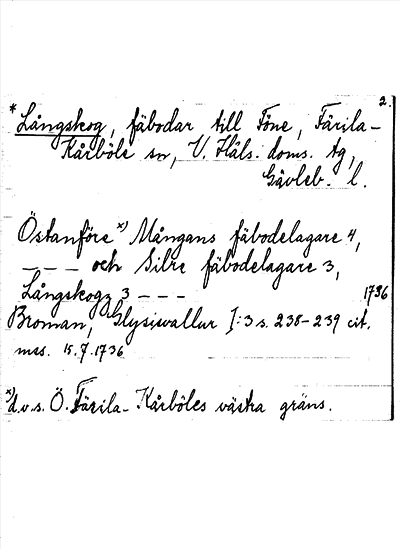 2.
*Långskog, fäbodar till Föne, Färila-
Kårböle sn, V. Häls. doms. tg,
Gävleb. l.
Östanföre x) Mångans fäbodelagare 4,
– – – och Silre fäbodelagare 3,
Långskog 3 – – – 1736
Broman, Glysisvallur I:3 s. 238–239 cit.
mss. 15.7.1736
x) d.v.s. Ö. Färila-Kårböles västra gräns.